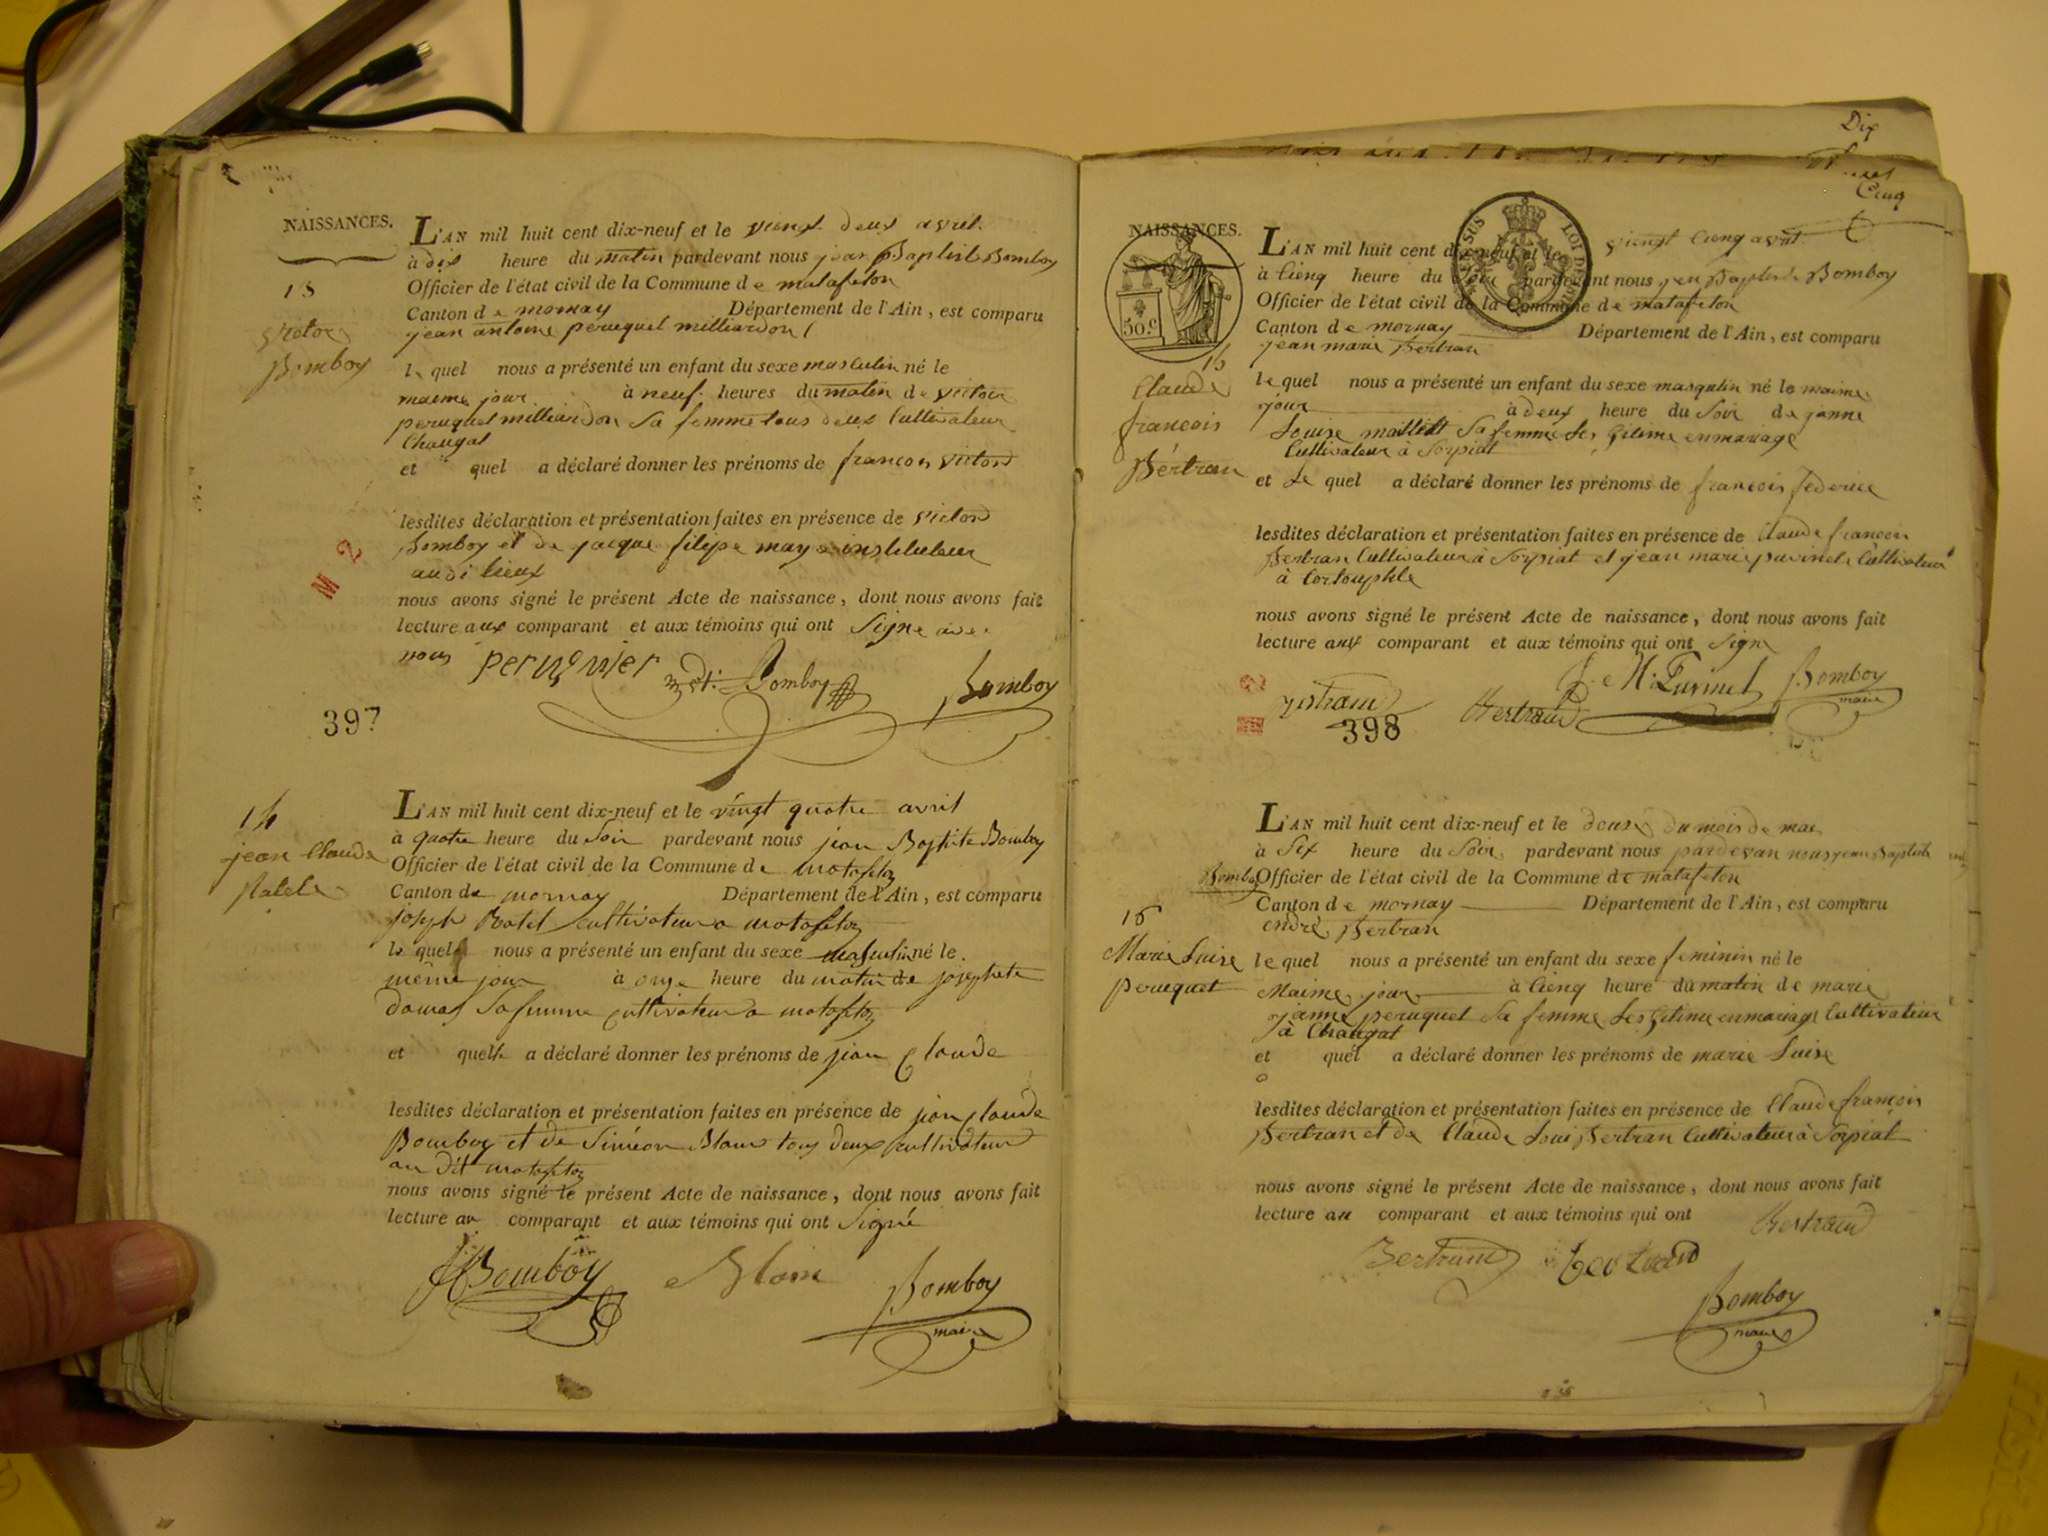 NAISSANCES.
L'AN mil huit cent dix-neuf et le vingt deux avril
à dix heure du matin pardevant nous jean Baptiste Bomboy
Officier de l'état civil de la Commune de matafelon
Canton de mornay Département de l'Ain, est comparu
jean antoine peruquet milliardon
13
Victor
Bomboy
le quel nous a présenté un enfant du sexe masculin né le
maeme jour à neuf heures du matin de victoir
peruquet milliardon sa femme tous deux Cultivateur
Chaugat
et quel a déclaré donner les prénoms de francois victord
lesdites déclaration et présentation faites en présence de victord
Bomboy et de jacque filipe may instituteur
audi lieux
M 2
nous avons signé le présent Acte de naissance, dont nous avons fait
lecture aux comparant et aux témoins qui ont signe avec
nous peruquier Bomboy Bomboy
397
14
jean Claude
Ratele
L'AN mil huit cent dix-neuf et le vingt quatre avril
à quatre heure du soir pardevant nous jean Baptiste Bomboy
Officier de l'état civil de la Commune de matafelon
Canton de mornay Département de l'Ain, est comparu
joseph Ratel cultivateur a matafelon
le quel nous a présenté un enfant du sexe masculin né le
même jour à onze heure du matin de josephete
damas sa femme cultivateur a matafelon
et quel a déclaré donner les prénoms de jean Claude
lesdites déclaration et présentation faites en présence de jean claude
Bomboy et de Siméon Blanc tous deux cultivateur
au dit matafelon
nous avons signé le présent Acte de naissance, dont nous avons fait
lecture au comparant et aux témoins qui ont signé
Bomboy Bomboy
maire
Dix
Cinq
NAISSANCES.
50 c
L'AN mil huit cent dix-neuf et le vient cienq avril
à cienq heure du soir pardevant nous jean Baptiste Bomboy
Officier de l'état civil de la Commune de matafelon
Canton de mornay Département de l'Ain, est comparu
jean marie Bertran
15
Claude
francois
Bertran
le quel nous a présenté un enfant du sexe masqulin né le maime
jour à deux heure du soir de janne
Louise maillet sa femme les gitime en mariage
Cultivateur à Sorpiat
et le quel a déclaré donner les prénoms de francois federice
lesdites déclaration et présentation faites en présence de Claude francois
Bertran Cultivateur à Sorpiat et jean marie Cultivateur
à
nous avons signé le présent Acte de naissance, dont nous avons fait
lecture aux comparant et aux témoins qui ont signe
Bertrand Bomboy
maire
398
L'AN mil huit cent dix-neuf et le douse du mois de mai
à six heure du soir pardevant nous pardevan nous jean Baptiste
Bomboy Officier de l'état civil de la Commune de matafelon
Canton de mornay Département de l'Ain, est comparu
endré Bertran
16
Marie Luise
peruquet
le quel nous a présenté un enfant du sexe feminin né le
Maime jour à cienq heure du matin de marie
janne peruquet sa femme les gitime en mariage Cultivateur
à Chaugat
et quel a déclaré donner les prénoms de marie Luise
lesdites déclaration et présentation faites en présence de Claude francois
Bertran et de Claude Loui Bertran Cultivateur à Sorpiat
nous avons signé le présent Acte de naissance, dont nous avons fait
lecture au comparant et aux témoins qui ont Bertrand
Bertrand Bertrand
Bomboy
maire